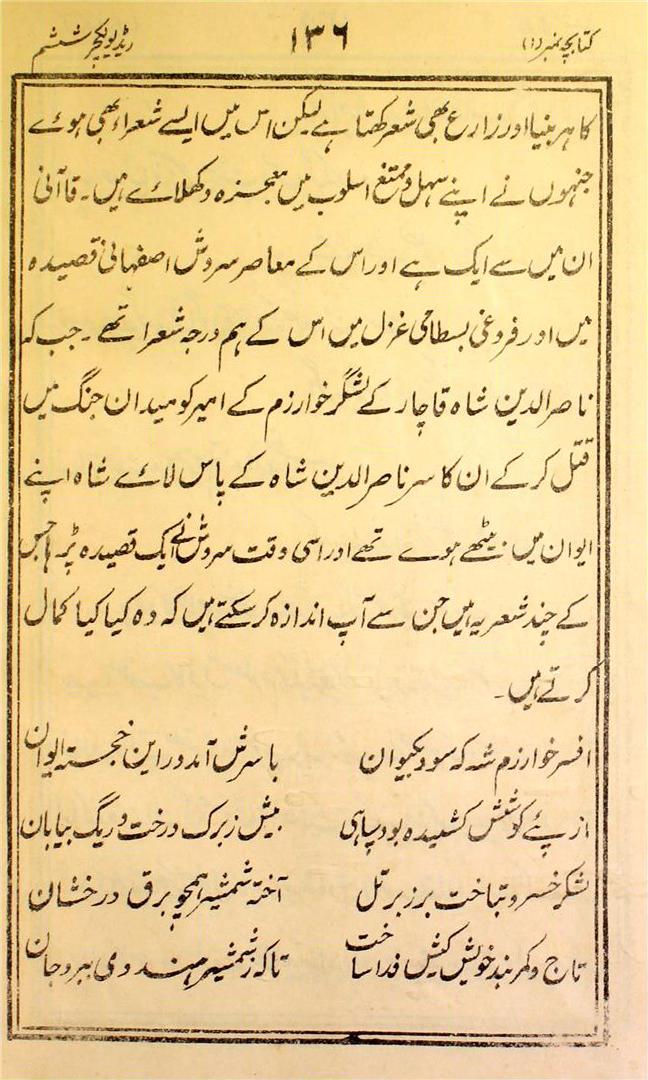 کتابچہ نمبر (۱) ۱۳۶ ریڈیو لکچر ششم
کا ہر بنیا اور زارع بھی شعر کہتا ہے لیکن اس میں ایسے شعراء بھی ہوئے
جنہوں نے اپنے سہل و ممتنع اسلوب میں معجزہ دکھلائے ہیں۔ قاآنی
ان میں سے ایک ہے اور اس کے معاصر سروش اصفہانی قصیدہ
میں اور فروغی بسطامی غزل میں اس کے ہم درجہ شعرا تھے ۔ جب کہ
ناصرالدین شاہ قاچار کے لشگر خوارزم کے امیر کو میدان جنگ میں
قتل کر کے ان کا سر ناصرالدین شاہ کے پاس لائے شاہ اپنے
ایوان میں بیٹھے ہوے تھے اور اسی وقت سروش نے ایک قصیدہ پڑہا جس
کے چند شعر یہ ہیں جن سے آپ اندازہ کر سکتے ہیں کہ وہ کیا کیا کمال
کرتے ہیں۔
افسر خوارزم شہ کہ سود بکیوان با سرش آمد در این خجستہ ایوان
از پئے کوشش کشیدہ بود سپاہی بیش ز برک درخت و ریگ بیابان
لشکر خسرو بتاخت بر زبر تل آختہ شمشیر ہمچو برق درخشان
تاج و کمر بند خویش کیش فدا ساخت تا کہ ز شمشیر ہندوی ببرد جان